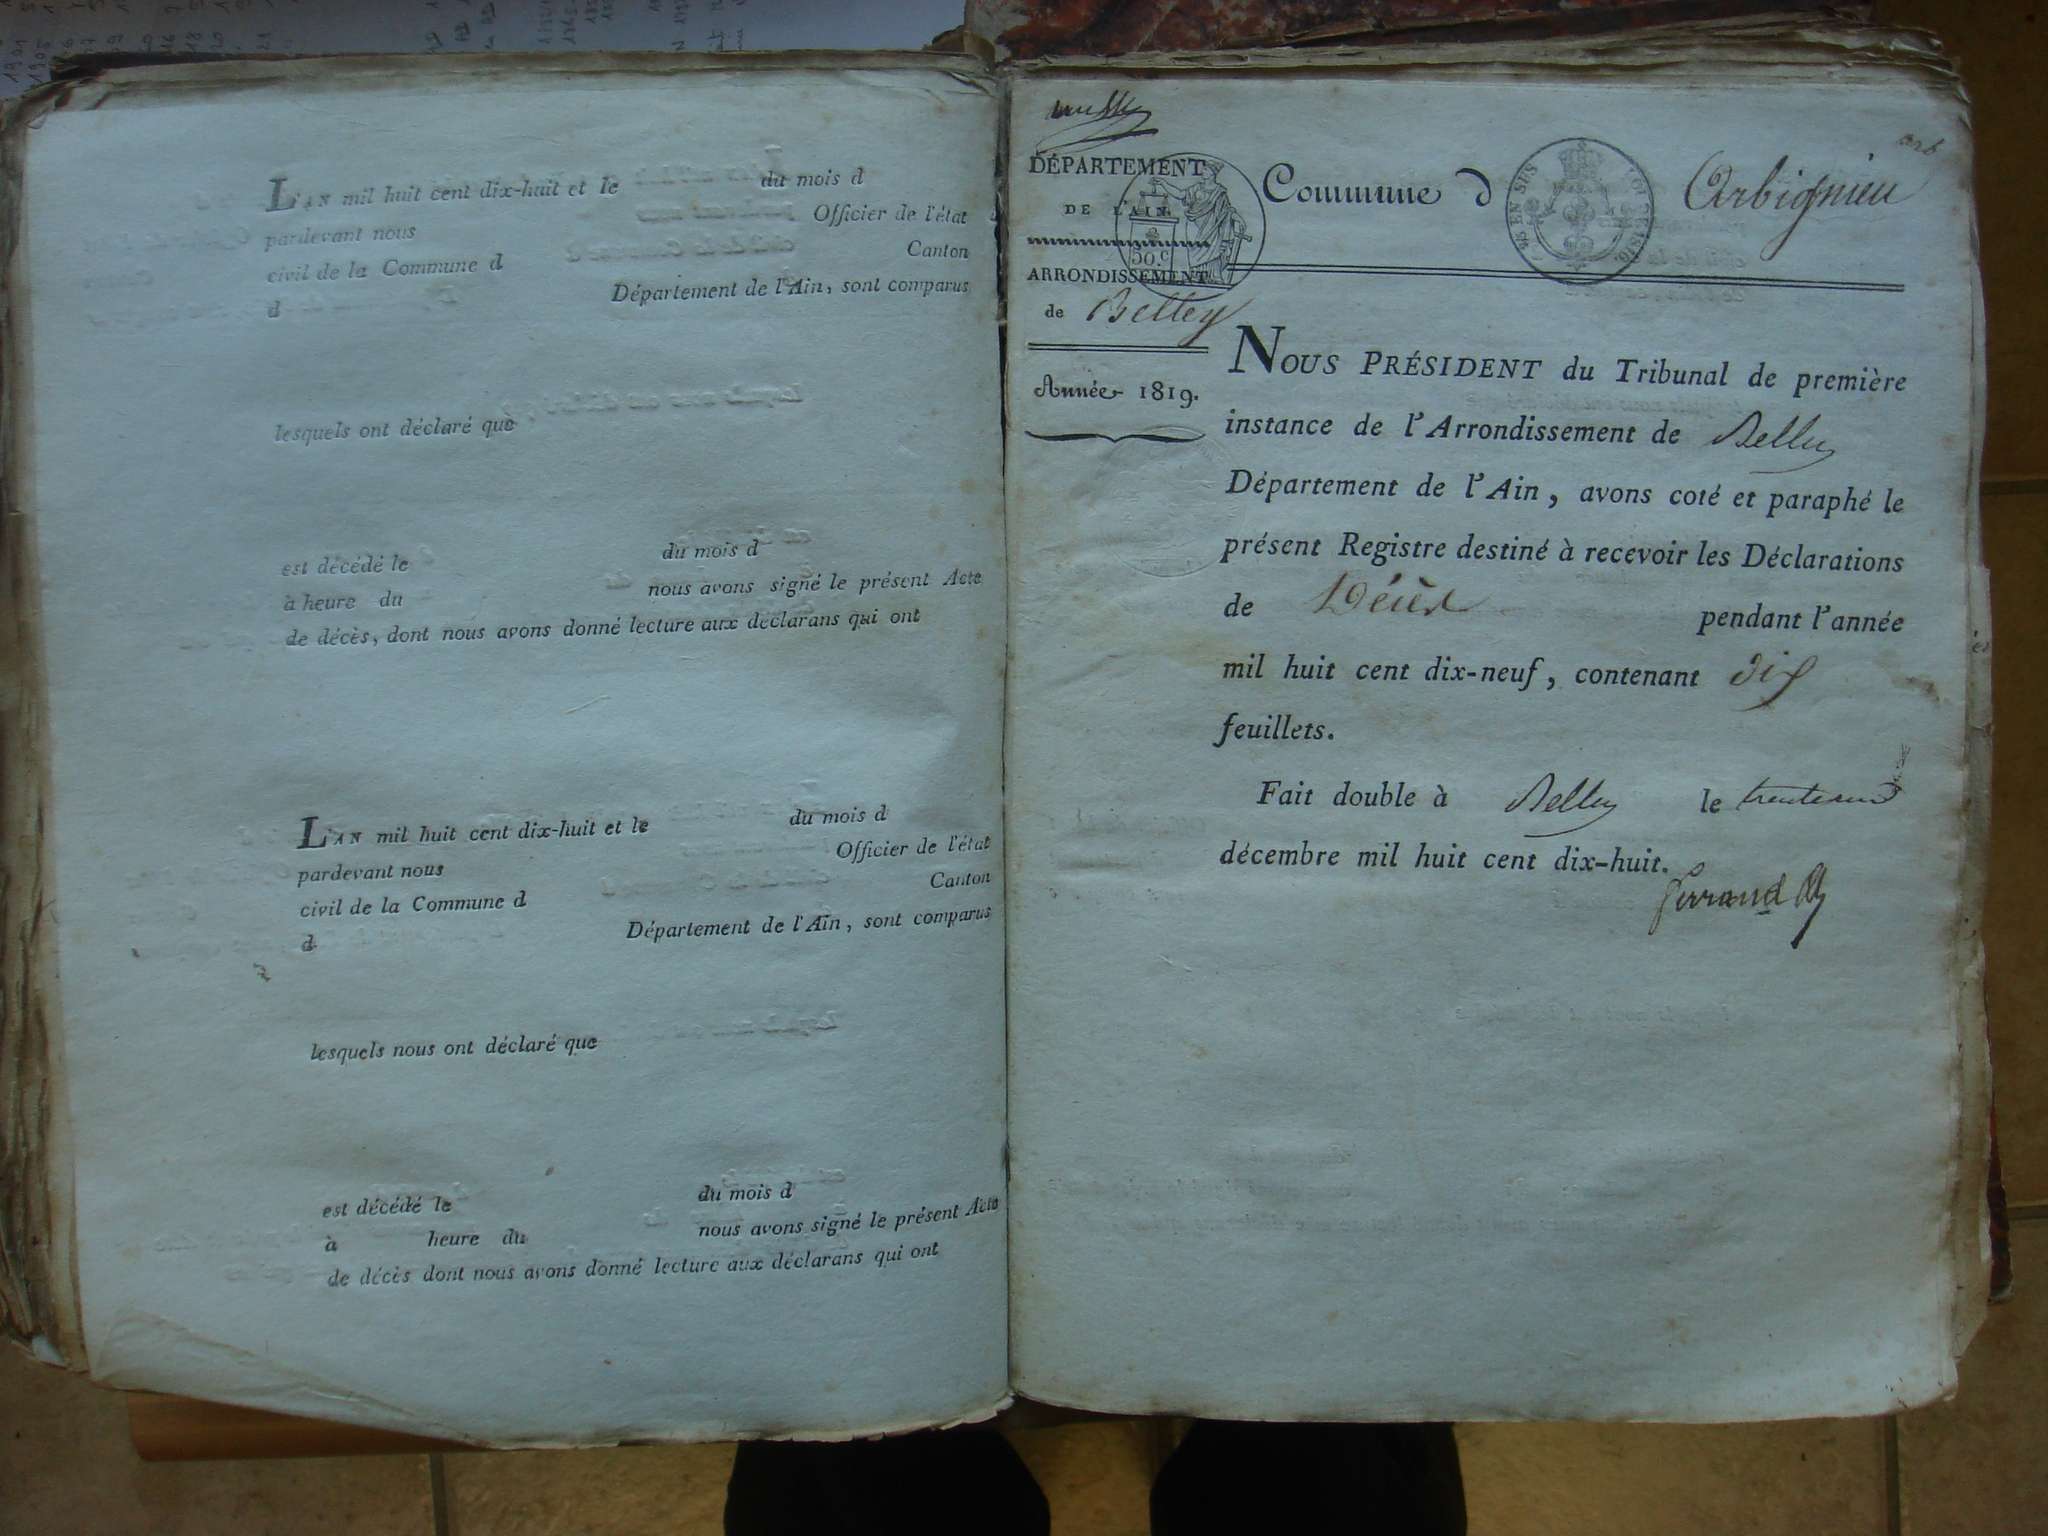 L'AN mil huit cent dix-huit et le du mois d
pardevant nous Officier de l'état
civil de la Commune d Canton
d Département de l'Ain, sont comparus
lesquels ont déclaré que
est décédé le du mois d
à heure du nous avons signé le présent Acte
de décès, dont nous avons donné lecture aux déclarans qui ont
L'AN mil huit cent dix-huit et le du mois d
pardevant nous Officier de l'état
civil de la Commune d Canton
d Département de l'Ain, sont comparus
lesquels nous ont déclaré que
est décédé le du mois d
à heure du nous avons signé le présent Acte
de décès dont nous avons donné lecture aux déclarans qui ont
DÉPARTEMENT
DE L'AIN.
50.c
ARRONDISSEMENT
de Belley
Année 1819.
Commune d Arbignieu
NOUS PRÉSIDENT du Tribunal de première
instance de l'Arrondissement de Belley
Département de l'Ain, avons coté et paraphé le
présent Registre destiné à recevoir les Déclarations
de Décès pendant l'année
mil huit cent dix-neuf, contenant dix
feuillets.
Fait double à Belley le trente un
décembre mil huit cent dix-huit.